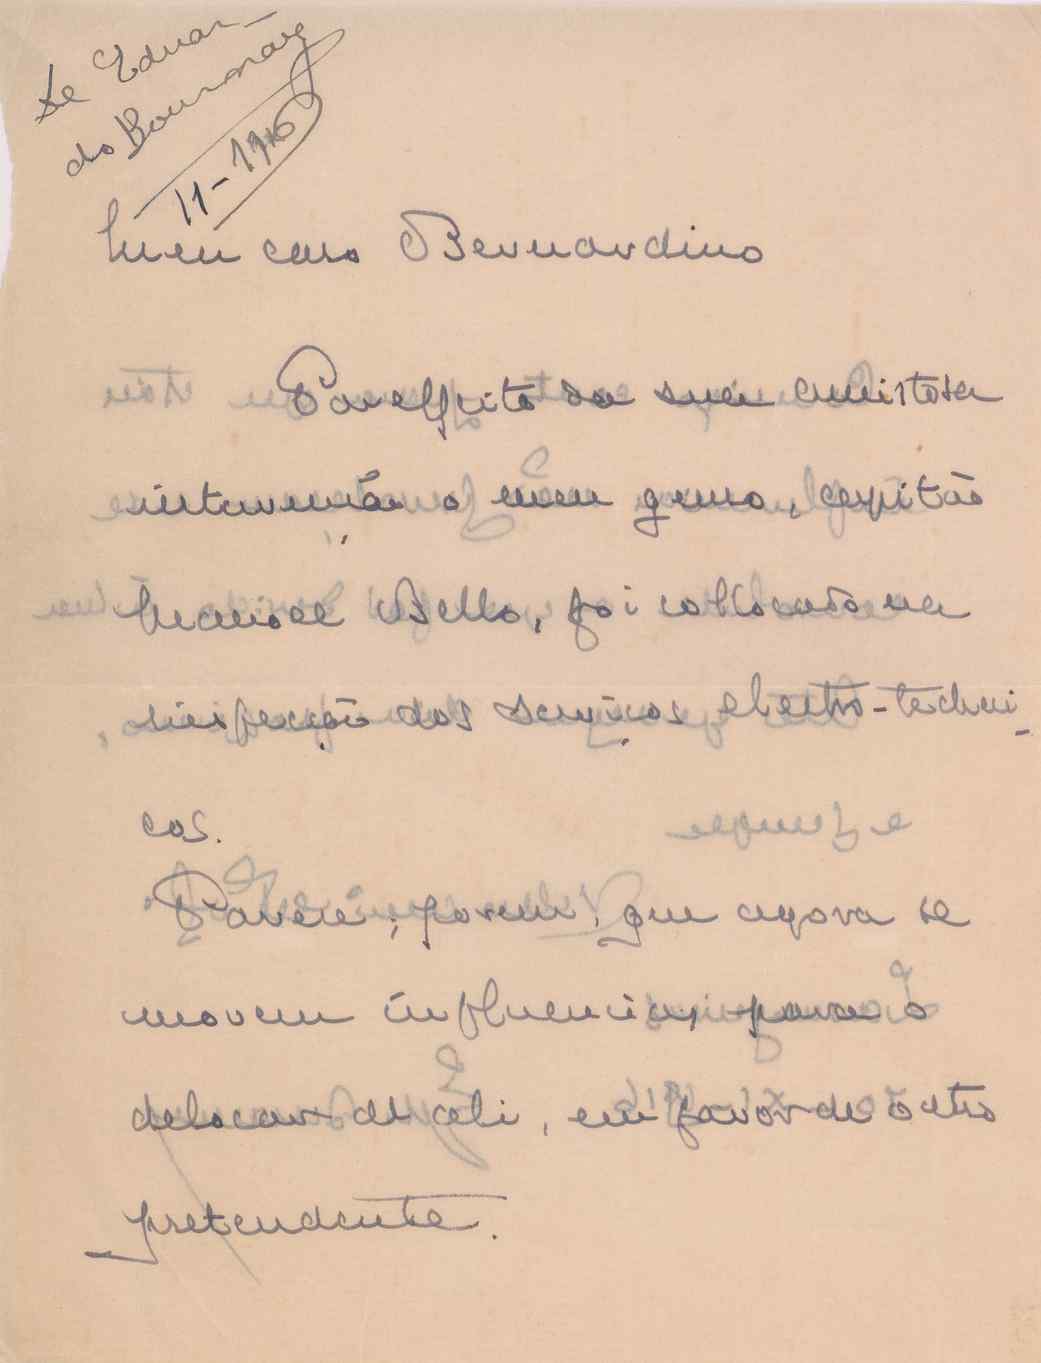 de Eduar-
do Bourmay
11-1916
Meu caro Bernardino
Por effeito da sua amistosa
intervenção o meu genro, capitão
Manoel Bello, foi collocado na
inspecção dos serviços electro-techni-
cos.
Parece, porem, que agora se
movem influencias para o
deslocar de ali, em favor de outro
pretendente.